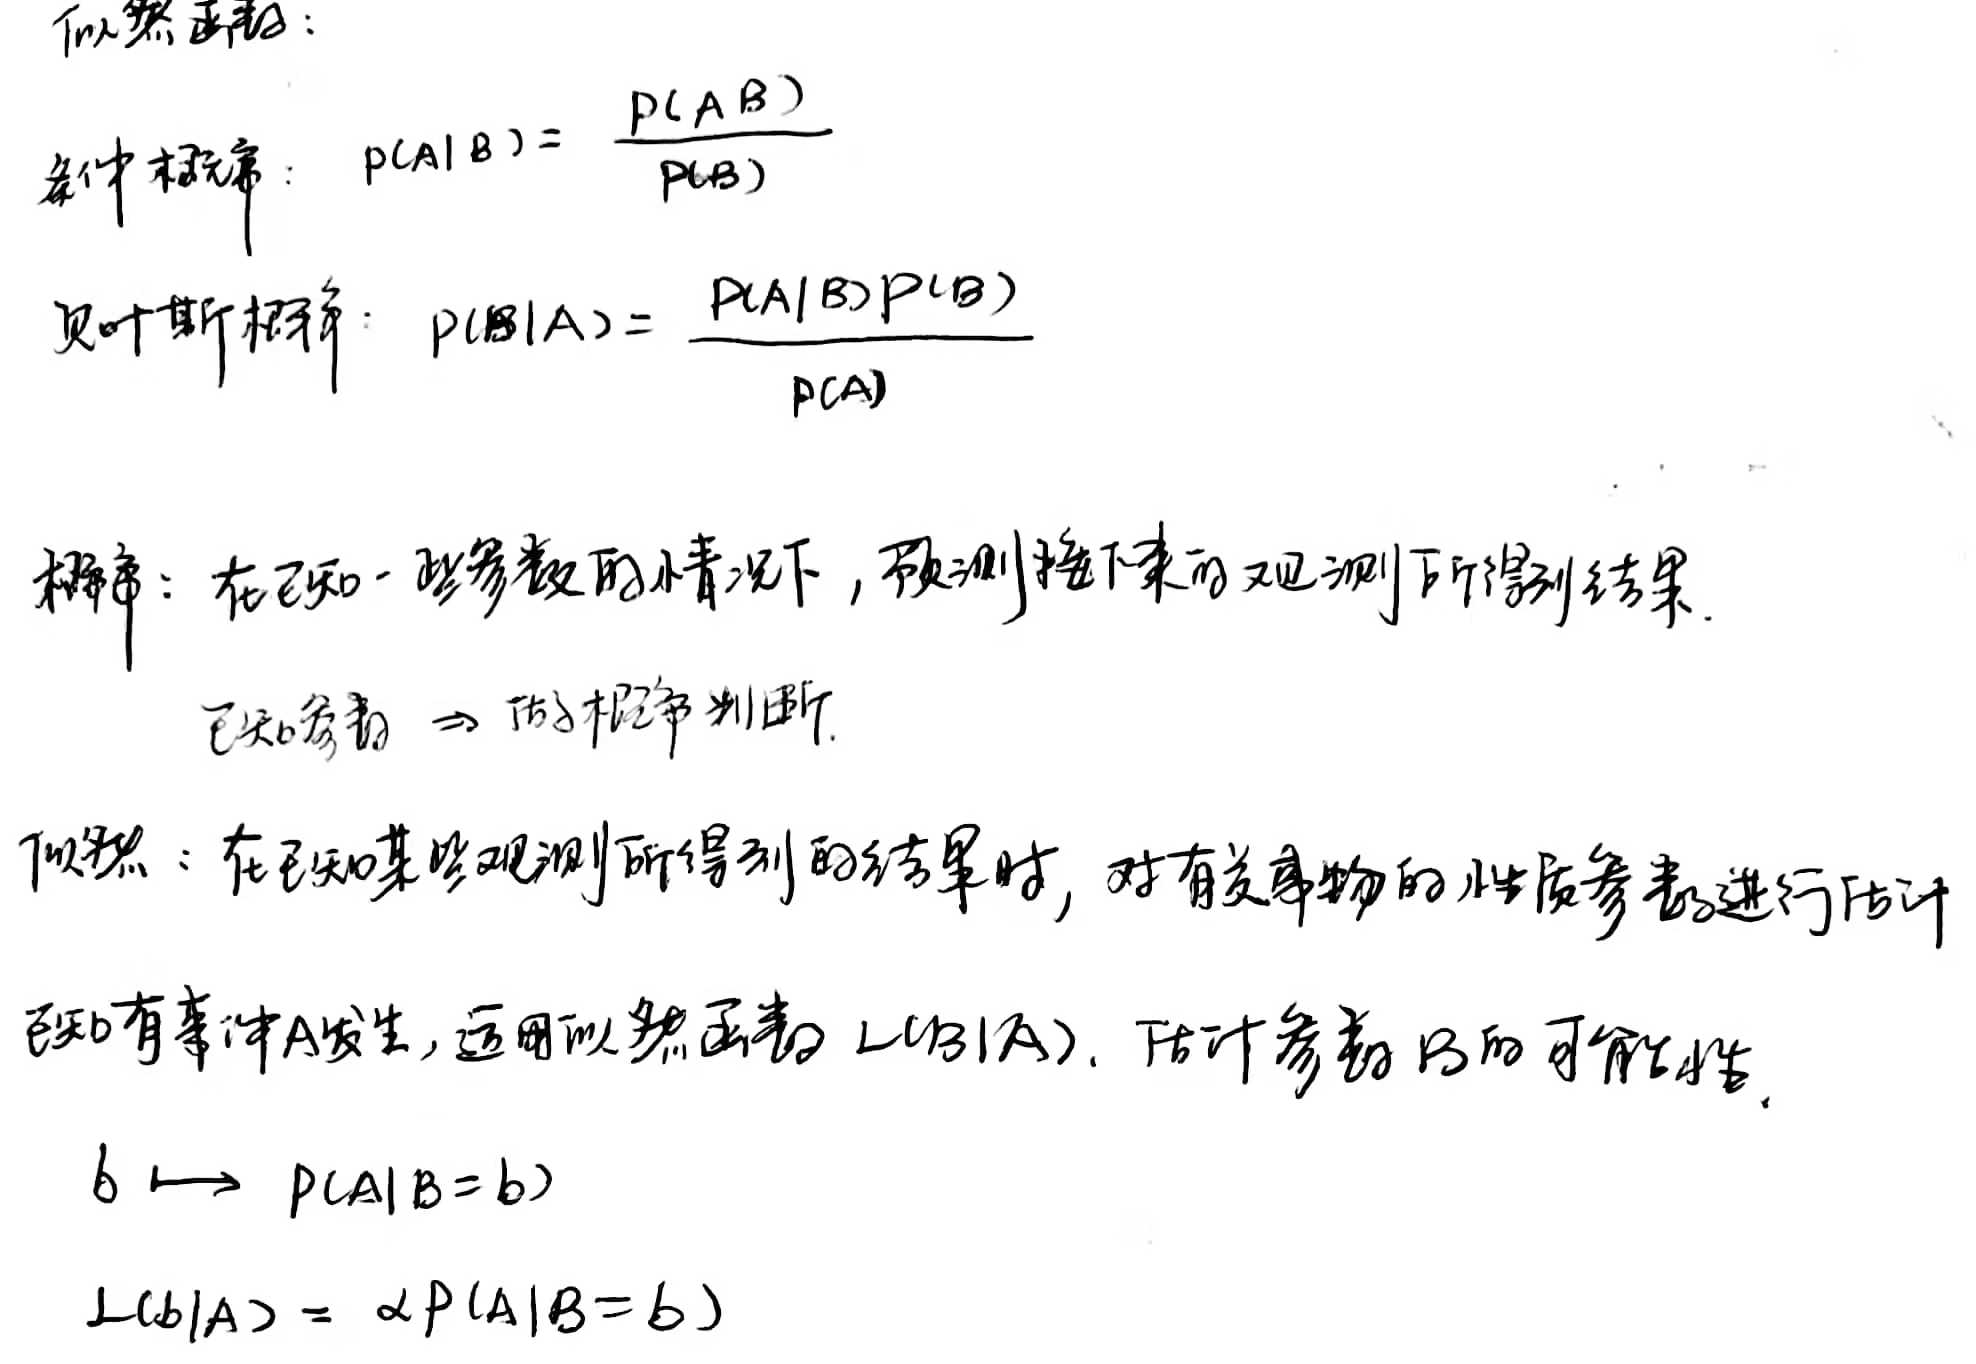 似然函数：
条件概率： P(A|B) = P(AB) / P(B)
贝叶斯概率： P(B|A) = P(A|B)P(B) / P(A)
概率：在已知一些参数的情况下，预测接下来的观测所得到结果.
已知参数 ⇒ 估计概率判断.
似然：在已知某些观测所得到的结果时，对有关事物的性质参数进行估计
已知有事件A发生，运用似然函数 L(B|A). 估计参数B的可能性.
b ⟼ P(A|B=b)
L(b|A) = αP(A|B=b)